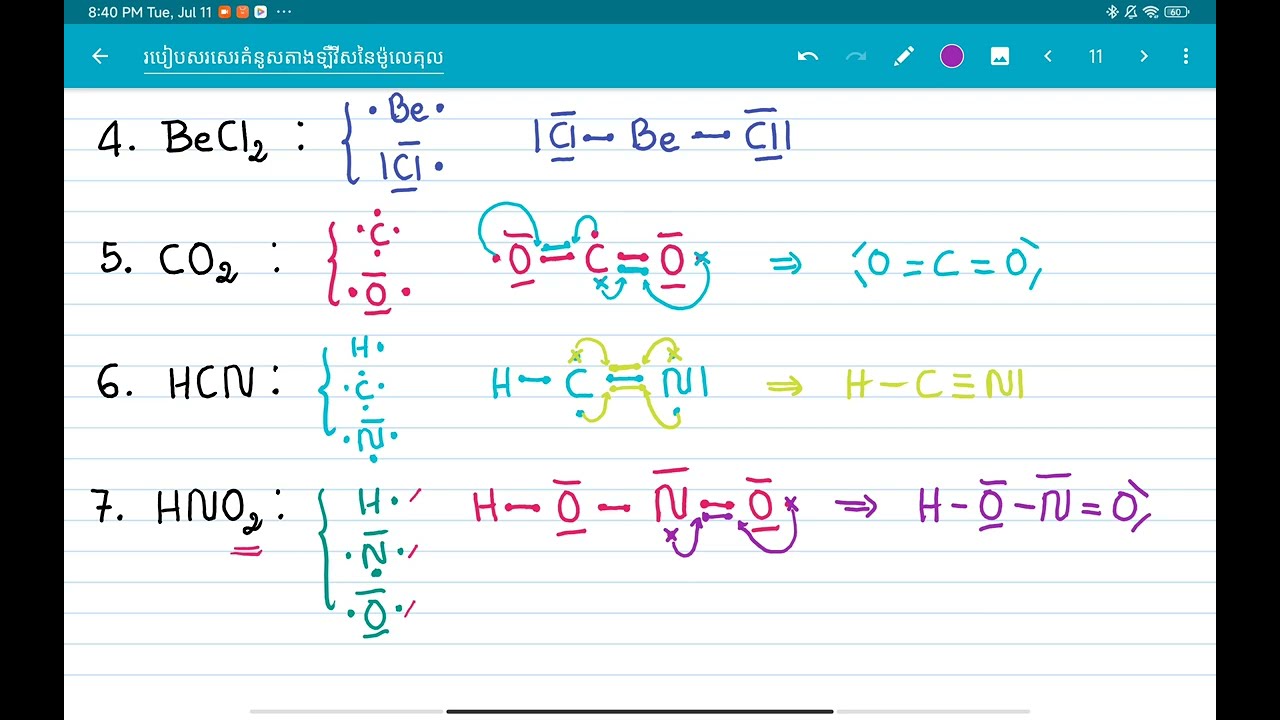 8:40 PM Tue, Jul 11 60
របៀបសរសេរគំនូសតាងឡឺវីសនៃម៉ូលេគុល 11
4. BeCl₂ : Be Cl Cl — Be — Cl
5. CO₂ : C O O = C = O ⇒ O = C = O
6. HCN : H C N H — C ≡ N ⇒ H — C ≡ N
7. HNO₂ : H N O H — O — N = O ⇒ H — O — N = O